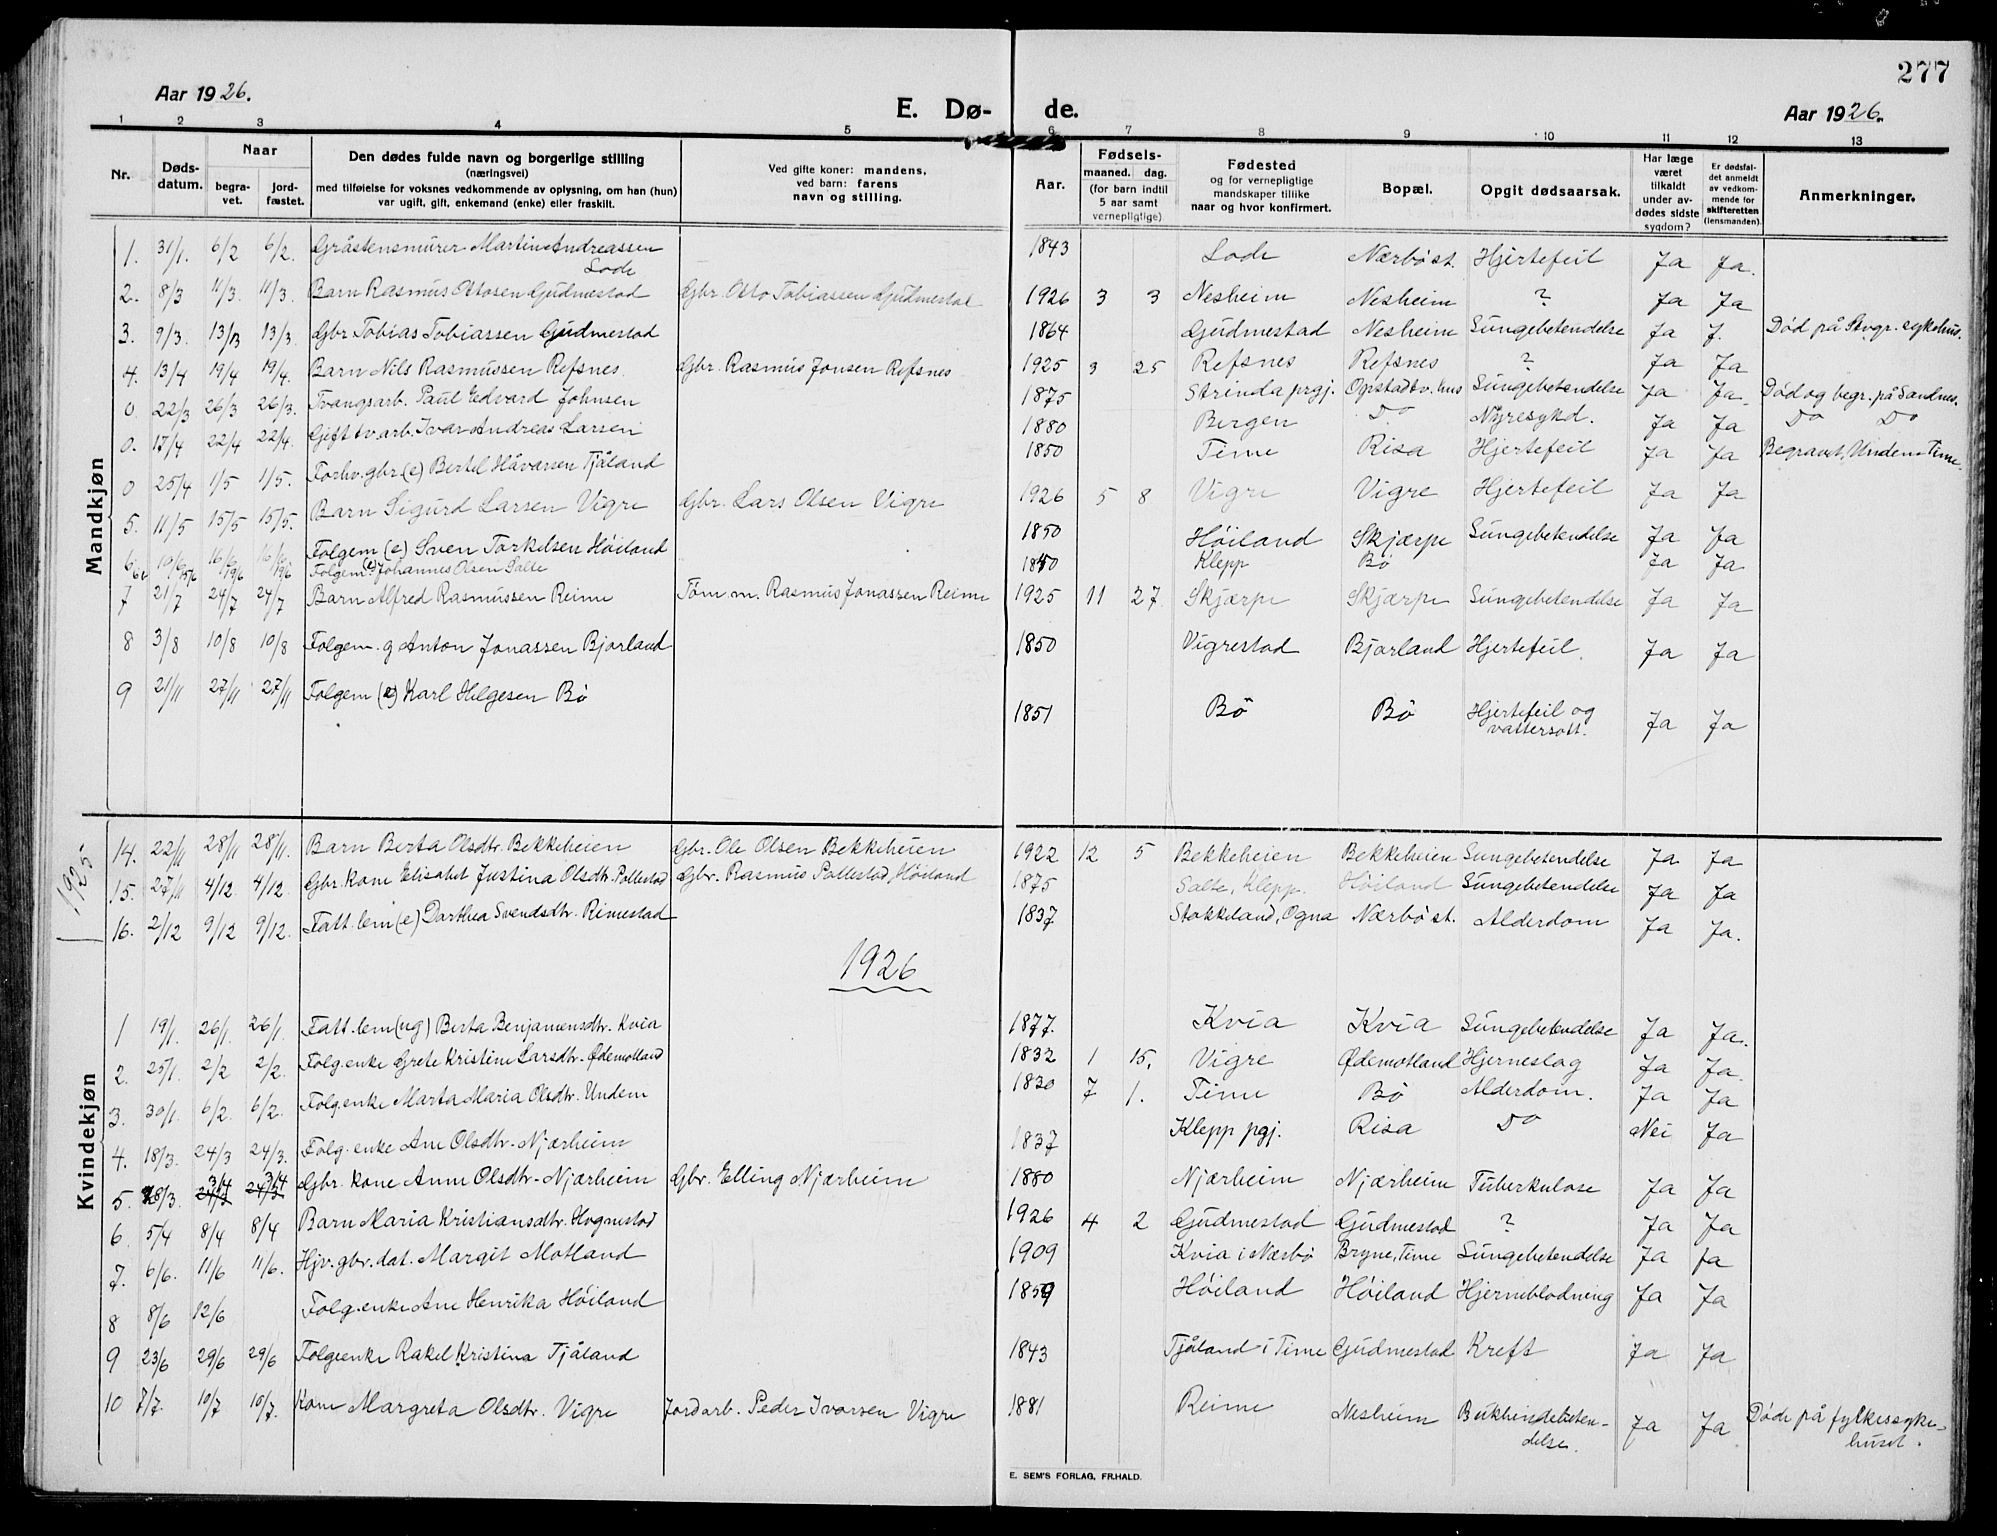 277
Aar 1926.
E. Dø- de.
Aar 1926.
1 2 3 4 5 6 7 8 9 10 11 12 13
Nr. Døds-datum. Naar begra-vet. jord-fæstet. Den dødes fulde navn og borgerlige stilling (næringsvei) med tilføielse for voksnes vedkommende av oplysning, om han (hun) var ugift, gift, enkemand (enke) eller fraskilt. Ved gifte koner: mandens, ved barn: farens navn og stilling. Aar. Fødsels- maaned. dag. (for barn indtil 5 aar samt vernepligtige) Fødested og for vernepligtige mandskaper tillike naar og hvor konfirmert. Bopæl. Opgit dødsaarsak. Har læge været tilkaldt under av-dødes sidste sygdom? Er dødsfal-det anmeldt av vedkom-mende for skifteretten (lensmanden). Anmerkninger.
Mandkjøn
1. 31/1. 6/2 6/2. Gråstensmurer Martin Andreassen Lode 1843 Lode Nærbø st. Hjertefeil Ja Ja.
2. 8/3 11/3. 11/3. Barn Rasmus Ottosen Gudmestad Gbr. Otto Tobiassen Gudmestad 1926 3 3 Nesheim Nesheim ? Ja Ja
3. 9/3. 13/3 13/3. Gbr Tobias Tobiassen Gudmestad 1864 Gudmestad Nesheim Lungebetendelse Ja J. Død på Stvgr. sykehus.
4. 13/4 19/4 19/4. Barn Nils Rasmussen Refsnes. Gbr. Rasmus Jonsen Refsnes 1925 3 25 Refsnes Refsnes ? Ja Ja
0 22/3 26/3 26/3. Tvangsarb. Paul Edvard Johnsen 1875 Strinda prgj. Opstadtv. hus Lungebetendelse Ja Ja. Død og begr. på Sandnes.
0. 17/4 22/4 22/4. Gift tv. arb. Ivar Andreas Larsen 1880 Bergen Do Nyresykd. Ja Ja Do Do
0 25/4 1/5 1/5. Forhv. gbr (e) Bertel Håvarsen Tjåland 1850 Time Risa Hjertefeil Ja Ja Begravet, Undem Time.
5. 11/5 15/5 15/5. Barn Sigurd Larsen Vigre Gbr. Lars Olsen Vigre 1926 5 8 Vigre Vigre Hjertefeil Ja Ja
6 10/6 16/6 16/6 Folgem (e) Sven Torkelsen Høiland 1850 Høiland Skjærpe Lungebetendelse Ja Ja
6b 15/6 19/6 19/6 Folgem. (e) Johannes Olsen Salte Klepp Bø Ja Ja
7 21/7 24/7 24/7 Barn Alfred Rasmussen Reime Tøm. m. Rasmus Jonassen Reime 1925 11 27 Skjærpe Skjærpe Lungebetendelse Ja Ja
8 3/8 10/8 10/8 Folgem. g Anton Jonassen Bjorland 1850 Vigrestad Bjorland Hjertefeil. Ja Ja
9 21/11 27/11 27/11 Folgem (e) Karl Helgesen Bø 1851 Bø Bø Hjertefeil og vattersott. Ja Ja
Kvindekjøn
1925
14. 22/11 28/11 28/11. Barn Berta Olsdtr. Bekkeheien Gbr. Ole Olsen Bekkeheien 1922 12 5 Bekkeheien Bekkeheien Lungebetendelse Ja Ja
15. 27/11 4/12. 4/12. Gbr. kone Elisabet Justina Olsdtr. Pollestad Gbr. Rasmus Pollestad, Høiland 1875 Salte, Klepp. Høiland Lungebetendelse Ja Ja
16. 2/12 9/12 9/12. Fatt. lem (e) Darthea Svendsdtr. Rimestad 1837 Stokkeland, Ogna Nærbø st. Alderdom Ja Ja.
1926
1 19/1. 26/1. 26/1. Fatt. lem (ug) Berta Benjamensdtr. Kvia 1877. Kvia Kvia Lungebetendelse Ja Ja.
2. 25/1. 2/2 2/2. Folg. enke Grete Kristine Larsdtr. Ødemotland 1832 1 15. Vigre Ødemotland Hjerneslag Ja Ja.
3. 30/1. 6/2. 6/2. Folg. enke Marta Maria Olsdtr. Undem 1830 7 1. Time Bø Alderdom. Ja Ja
4. 18/3. 24/3 24/3. Folg. enke Ane Olsdtr. Njærheim 1837 Klepp pgj. Risa Do Nei Ja
5. 28/3. 3/4 3/4 Gbr. kone Anne Olsdtr. Njærheim Gbr. Elling Njærheim 1880 Njærheim Njærheim Tuberkulose Ja Ja
6 5/4 8/4 8/4 Barn Maria Kristiansdtr. Hognestad 1926 4 2 Gudmestad Gudmestad ? Ja Ja
7. 6/6. 11/6 11/6. Hjv. gbr. dat. Margit Motland 1909 Kvia i Nærbø Bryne, Time Lungebetendelse Ja Ja
8 8/6 12/6 Folg. enke Ane Henrika Høiland 1859 Høiland Høiland Hjerneblødning Ja Ja
9 23/6 29/6 29/6 Folgeenke Rakel Kristina Tjåland 1843 Tjåland i Time Gudmestad Kreft Ja Ja
10 7/7. 10/7 10/7. Kone Margreta Olsdtr. Vigre Jordarb. Peder Ivarsen Vigre 1881 Reime Nesheim Bukhindebeten-delse. Ja Ja Døde på fylkessyke-huset.
E. SEM'S FORLAG, FR.HALD.